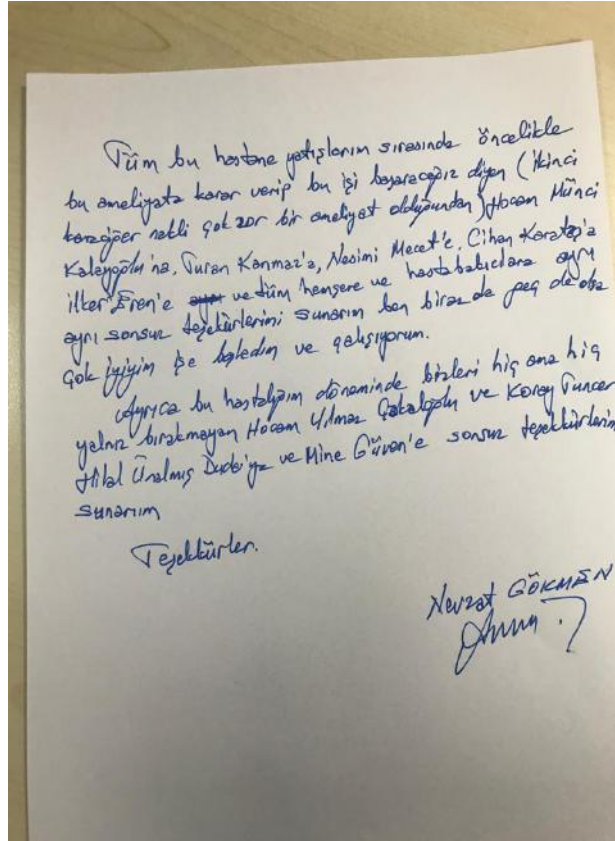 Tüm bu hastane yatışlarım sırasında öncelikle
bu ameliyata karar verip bu işi başaracağız diyen (ikinci
karaciğer nakli çok zor bir ameliyat olduğundan) Hocam Münci
Kalayoğlu'na, Turan Kanmaz'a, Nesimi Mecet'e, Cihan Karataş'a
ilker Eren'e ve tüm hemşere ve hastabakıcılara ayrı
ayrı sonsuz teşekkürlerimi sunarım ben biraz de geç de olsa
çok iyiyim işe başledım ve çalışıyorum.
Ayrıca bu hastalığım döneminde bizleri hiç ama hiç
yalnız bırakmayan Hocam Yılmaz Çakaloğlu ve Koray Tuncer
Hilal Ünalmış Duda'ya ve Mine Güven'e sonsuz teşekkürlerim
sunarım
Teşekkürler.
Nevzat GÖKMEN